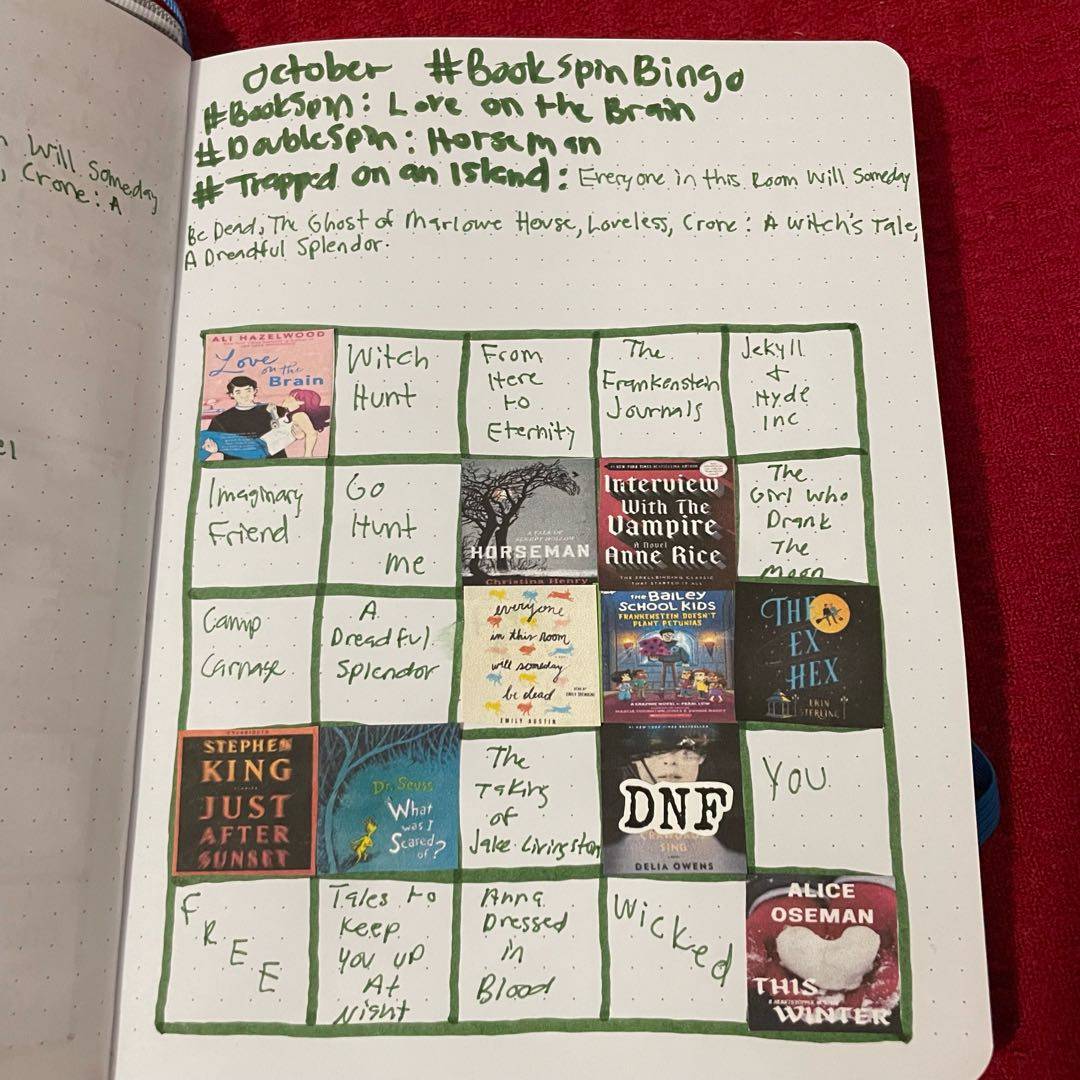 October #BookSpinBingo
#BookSpin: Love on the Brain
#DoubleSpin: Horseman
#Trapped on an Island: Everyone in this Room Will Someday
Be Dead, The Ghost of Marlowe House, Loveless, Crone: A Witch's Tale,
A Dreadful Splendor.
Will Someday
, Crone: A
ALI HAZELWOOD
Love
on the
Brain
Witch
Hunt
From
Here
to
Eternity
The
Frankenstein
Journals
Jekyll
+
Hyde
Inc
Imaginary
Friend
Go
Hunt
me
A TALE OF
SLEEPY HOLLOW
HORSEMAN
Christina Henry
#1 NEW YORK TIMES BESTSELLING AUTHOR
Interview
With The
Vampire
A Novel
Anne Rice
THE SPELLBINDING CLASSIC
THAT STARTED IT ALL
The
Girl Who
Drank
The
Moon
Camp
Carnage
A
Dreadful
Splendor
everyone
in this room
will someday
be dead
EMILY AUSTIN
THE BAILEY
SCHOOL KIDS
FRANKENSTEIN DOESN'T
PLANT PETUNIAS
THE
EX
HEX
ERIN
STERLING
STEPHEN
KING
JUST
AFTER
SUNSET
Dr. Seuss
What
was I
Scared
of?
The
Taking
of
Jake Livingston
DNF
SING
DELIA OWENS
YOU
FREE
Tales to
Keep
You up
At
Night
Anna
Dressed
in
Blood
Wicked
ALICE
OSEMAN
THIS
WINTER